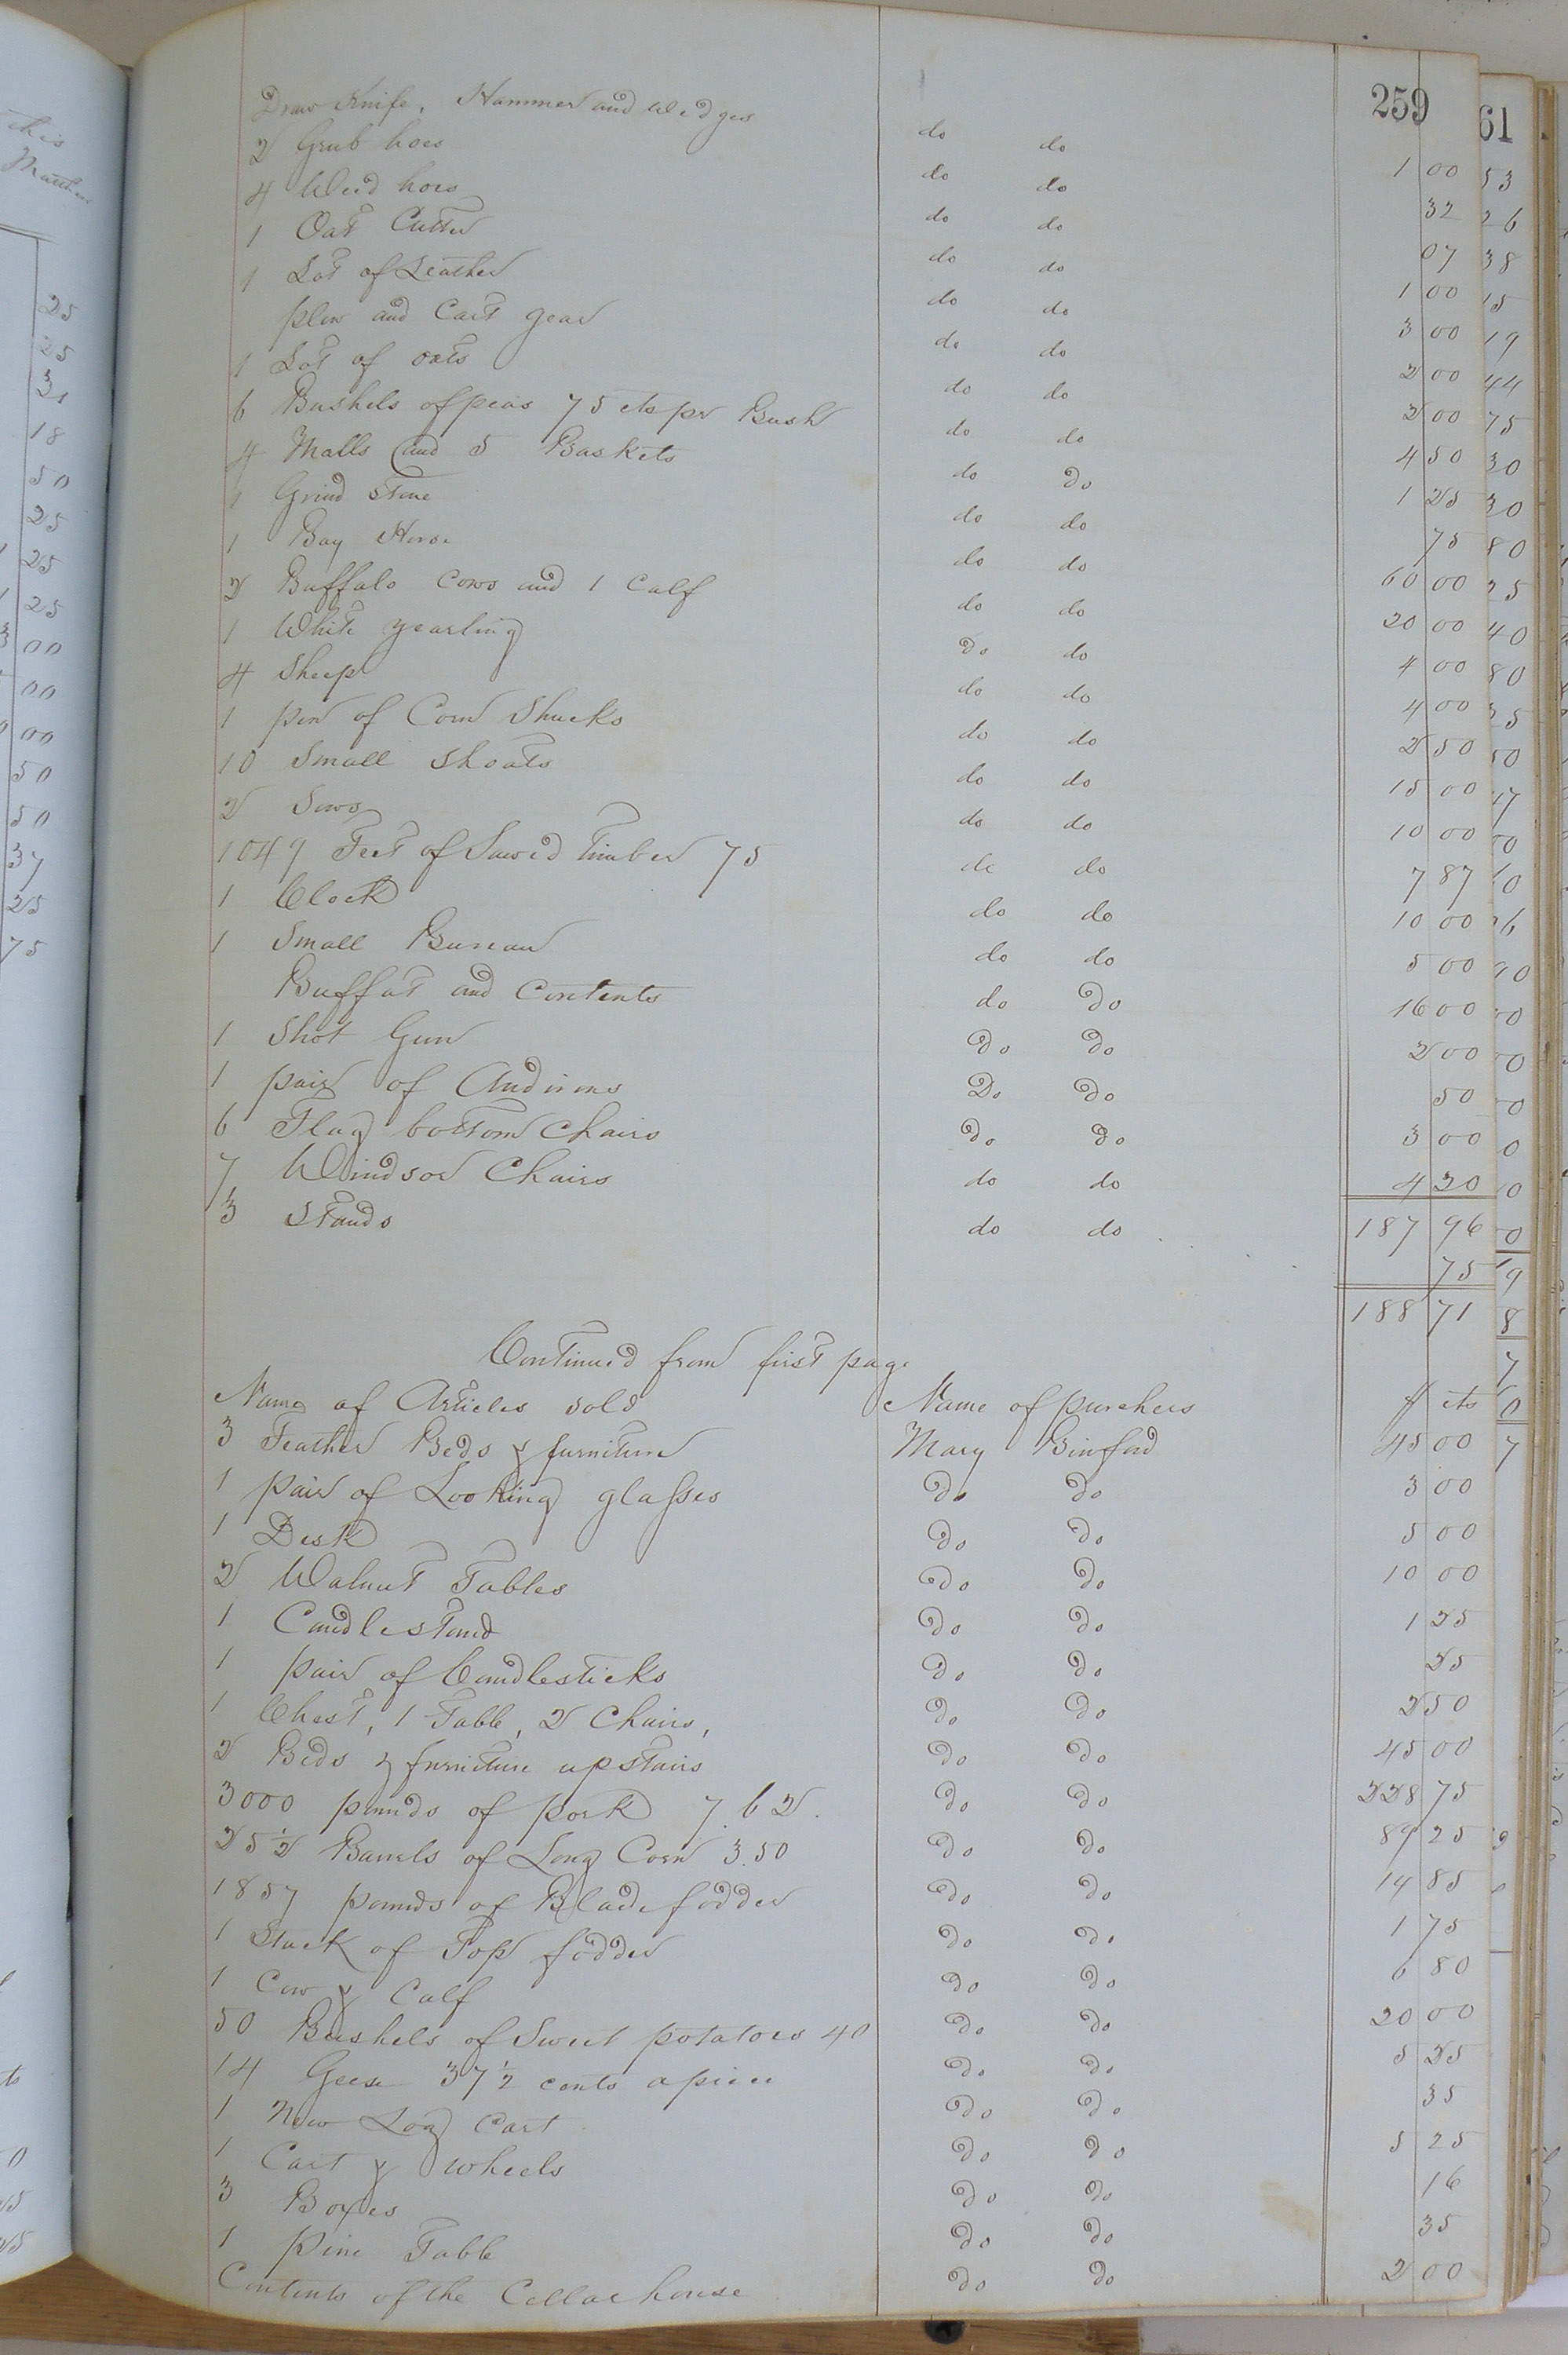 259
Draw Knife, Hammer and Wedges do do 1 00
2 Grub hoes do do 32
4 Weed hoes do do 07
1 Oat Cutter do do 1 00
1 Lot of Leather do do 3 00
plow and Cart gear do do 2 00
1 Lot of oats do do 2 00
6 Bushels of peas 75 cts pr Bush do do 4 50
4 Malls and 5 Baskets do do 1 25
1 Grind Stone do do 75
1 Bay Horse do do 60 00
2 Buffalo Cows and 1 Calf do do 20 00
1 White yearling do do 4 00
4 Sheep do do 4 00
1 pen of Corn Shucks do do 2 50
10 Small Shoats do do 15 00
2 Sows do do 10 00
1049 Feet of Sawed timber 75 do do 7 87
1 Clock do do 10 00
1 Small Bureau do do 5 00
Buffat and Contents do do 16 00
1 Shot Gun do do 2 00
1 pair of Andirons do do 50
6 Flag bottom Chairs do do 3 00
7 Windsor Chairs do do 4 20
3 Stands do do 187 96
75
188 71
Continued from first page
Name of Articles sold Name of purchers $ cts
3 Feather Beds & furniture Mary Binford 45 00
1 pair of Looking glasses Do Do 3 00
1 Desk Do Do 5 00
2 Walnut Tables Do Do 10 00
1 Candlestand Do Do 1 25
1 pair of Candlesticks Do Do 25
1 Chest, 1 Table, 2 Chairs, Do Do 2 50
2 Beds & furniture upstairs Do Do 45 00
3000 pounds of pork 7.62. Do Do 228 75
25½ Barrels of Long Corn 3.50 Do Do 89 25
1857 pounds of Blade fodder Do Do 14 85
1 Stack of Top fodder Do Do 1 75
1 Cow & Calf Do Do 6 80
50 Bushels of Sweet potatoes 40 Do Do 20 00
14 Geese 37½ cents apiece Do Do 5 25
1 New Log Cart Do Do 35
1 Cart & wheels Do Do 5 25
3 Boxes Do Do 16
1 pine Table Do Do 35
Contents of the Cellar house Do Do 2 00